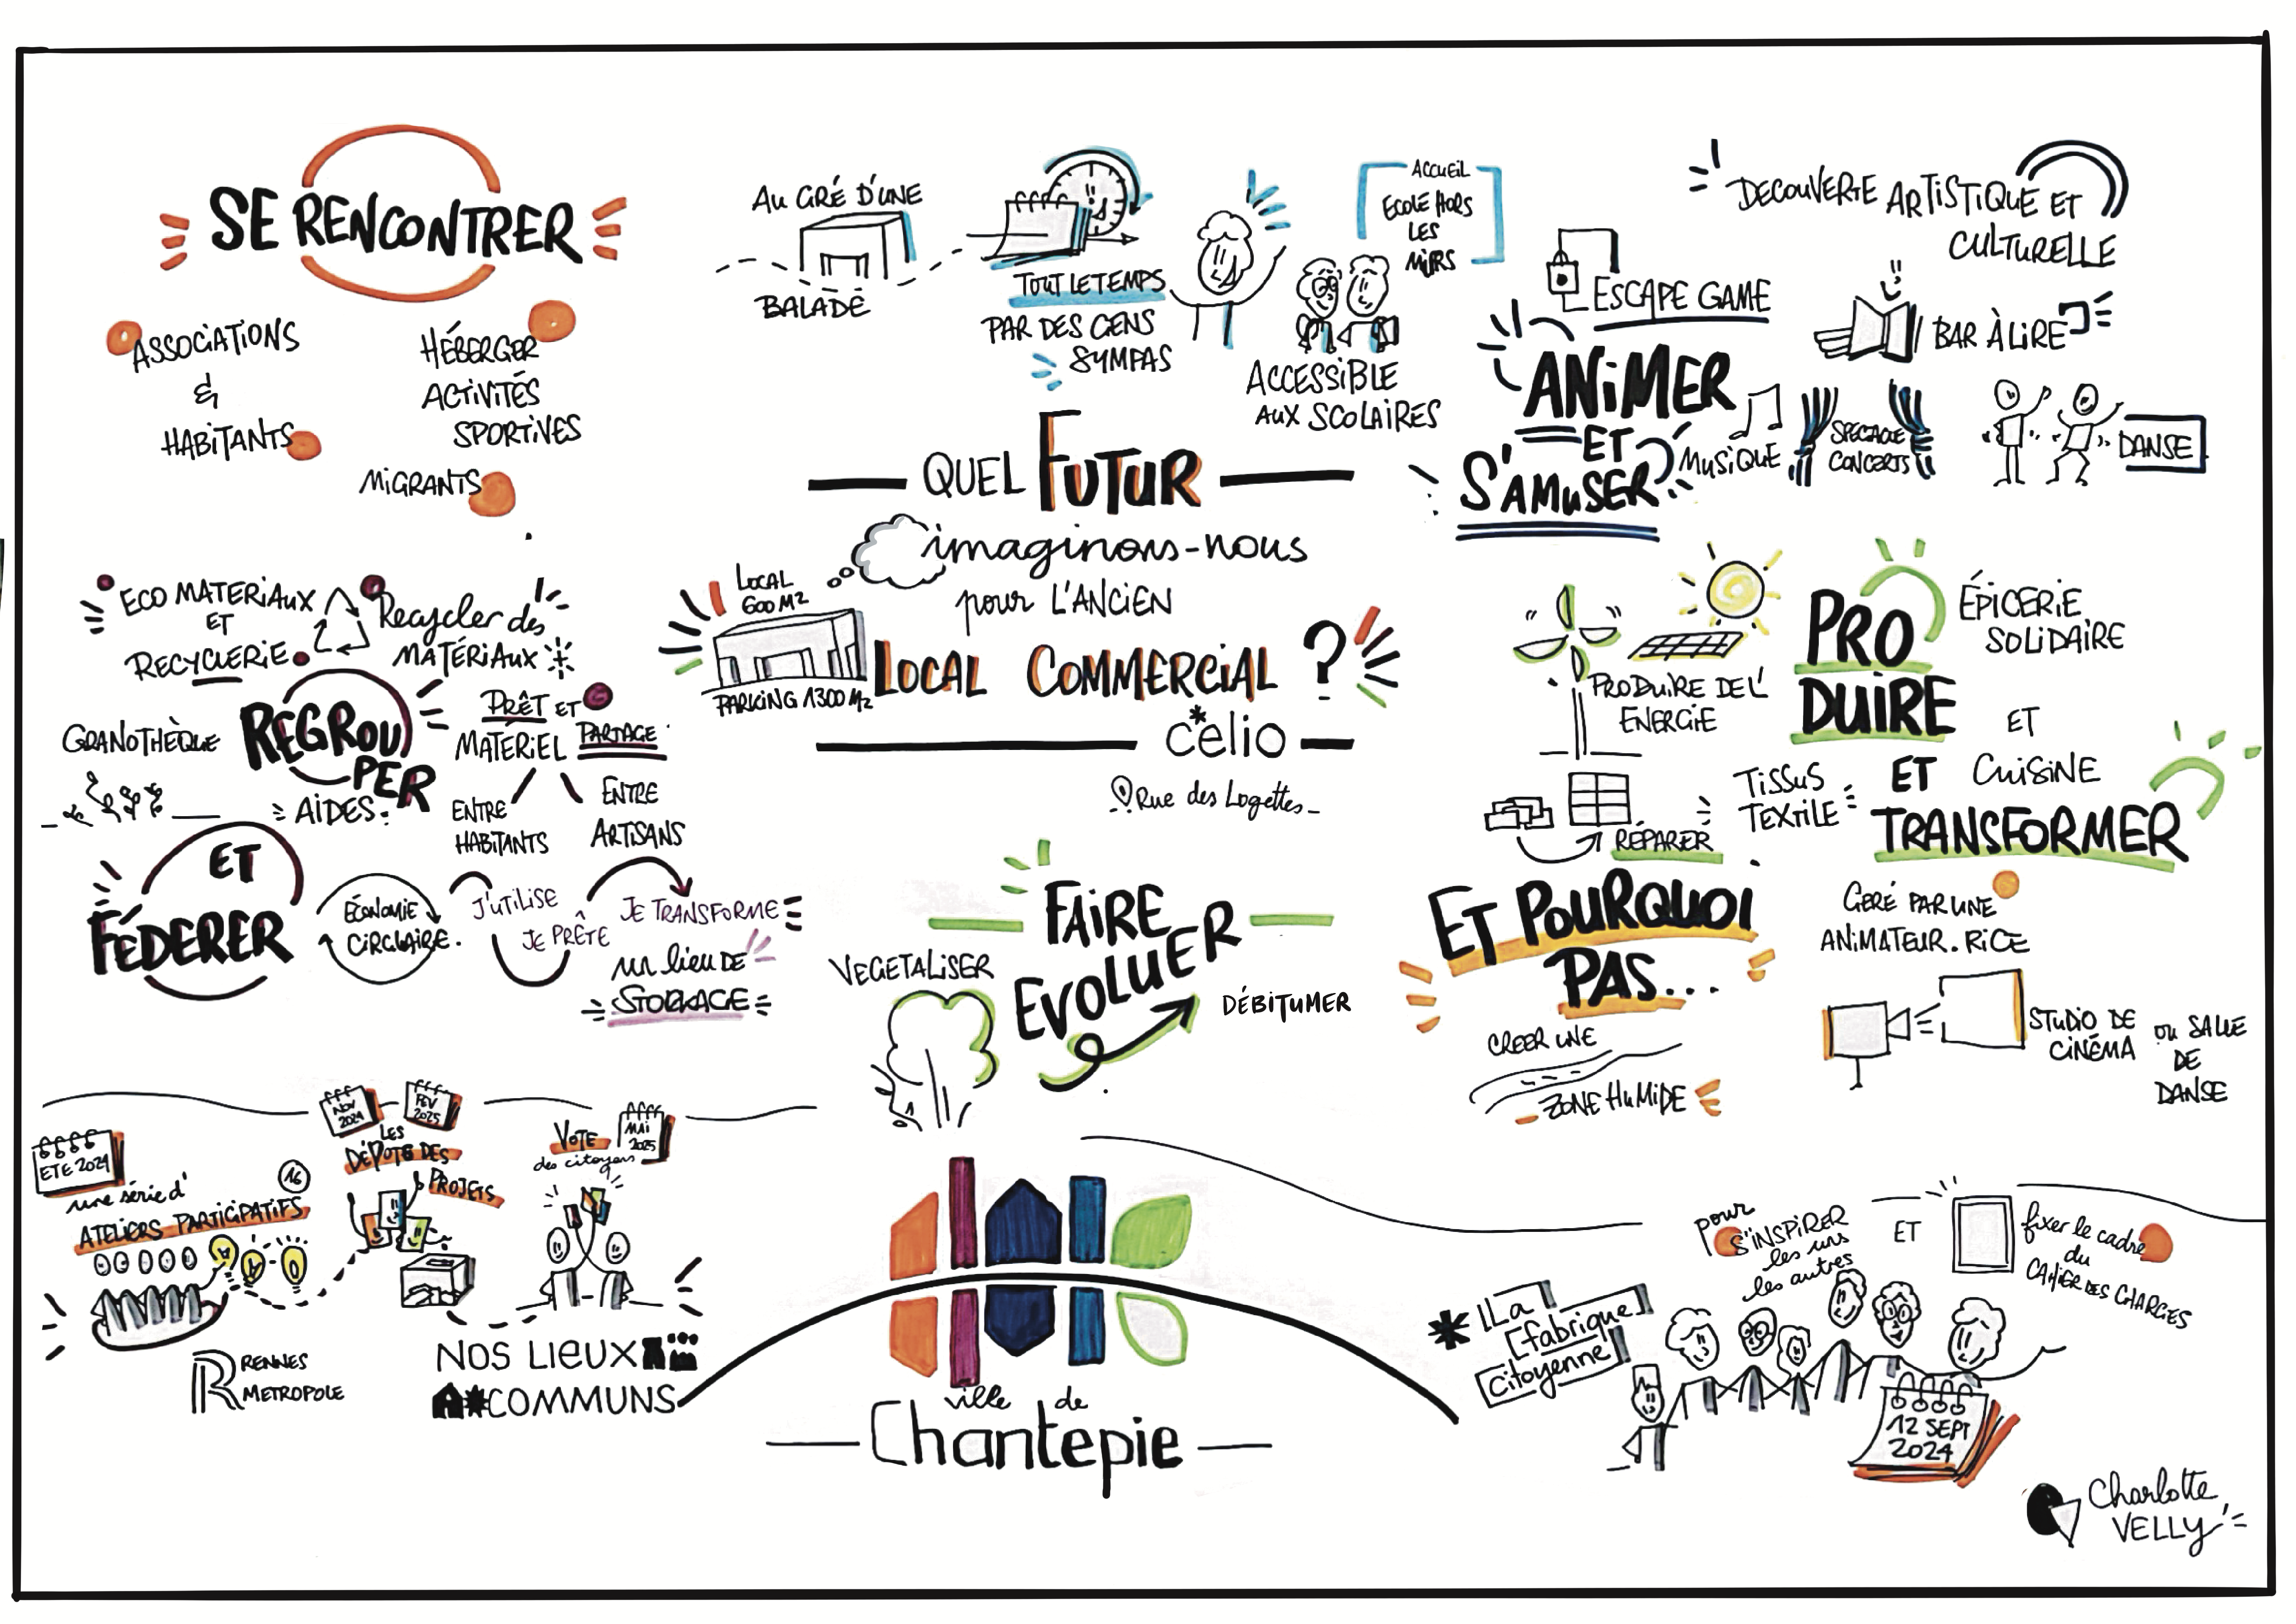 SE RENCONTRER
ASSOCIATIONS
&
HABITANTS
HÉBERGER
ACTIVITÉS
SPORTIVES
MIGRANTS
AU GRÉ D'UNE
BALADE
TOUT LE TEMPS
PAR DES GENS
SYMPAS
ACCUEIL
ECOLE HORS
LES
MURS
ACCESSIBLE
AUX SCOLAIRES
DECOUVERTE ARTISTIQUE ET
CULTURELLE
ESCAPE GAME
BAR À LIRE
ANIMER
ET
S'AMUSER
MUSIQUE
SPECTACLE
CONCERTS
DANSE
QUEL FUTUR
imaginons-nous
pour L'ANCIEN
LOCAL COMMERCIAL ?
celio*
Rue des Logettes
LOCAL
600 M2
PARKING 1300 M2
ECO MATERIAUX
ET
RECYCLERIE
Recycler des
MATÉRIAUX
GRANOTHÈQUE
REGROU
PER
AIDES
PRÊT ET
MATÉRIEL PARTAGE
ENTRE
HABITANTS
ENTRE
ARTISANS
ET
FÉDERER
ÉCONOMIE
CIRCULAIRE.
J'UTILISE
JE PRÊTE
JE TRANSFORME
un lieu DE
STOCKAGE
PRODUIRE DE L'
ENERGIE
PRO
DUIRE
ET
TRANSFORMER
ÉPICERIE
SOLIDAIRE
ET
CUISINE
TISSUS
TEXTILE
RÉPARER
FAIRE
EVOLUER
VEGETALISER
DÉBITUMER
ET POURQUOI
PAS...
CREER UNE
ZONE HUMIDE
GERÉ PAR UNE
ANIMATEUR.RICE
STUDIO DE
CINÉMA
ou SALLE
DE
DANSE
ETE 2024
une série d'
16
ATELIERS PARTICIPATIFS
NOV
2024
FEV
2025
LES
DÉPOTS DES
PROJETS
VOTE
des citoyens
MAI
2025
RENNES
METROPOLE
NOS LIEUX
COMMUNS
ville de
Chantepie
pour
S'INSPIRER
les uns
les autres
ET
fixer le cadre
du
CAHIER DES CHARGES
La
fabrique
Citoyenne
12 SEPT
2024
Charlotte
VELLY